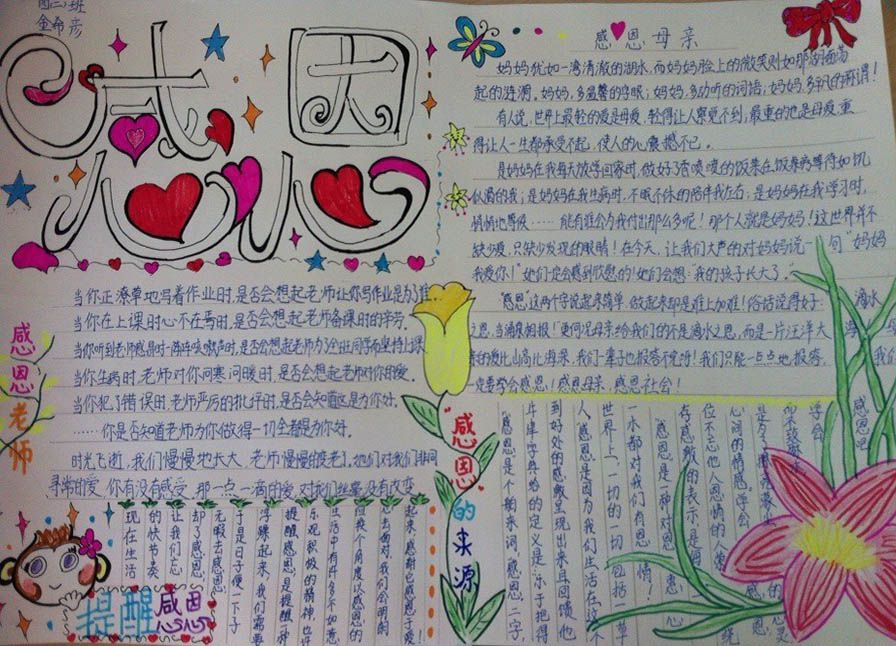 四(二)班
金希彦
感恩
感恩老师
当你正潦草地写着作业时,是否会想起老师让你写作业是为了谁
当你在上课时心不在焉时,是否会想起老师备课时的辛劳。
当你听到老师感冒时一阵阵咳嗽声时,是否会想起老师为了全班同学而坚持上课
当你生病时,老师对你问寒问暖时,是否会想起老师对你的爱。
当你犯了错误时,老师严厉的批评时,是否会知道这是为你好。
……你是否知道老师为你做得一切全都是为你好。
时光飞逝,我们慢慢地长大,老师慢慢的变老了,他们对我们
寻常的爱,你有没有感受,那一点一滴的爱,对我们丝毫没有改变
感恩母亲
妈妈犹如一湾清澈的湖水,而妈妈脸上的微笑则如那湖面荡
起的涟漪。妈妈,多温馨的字眼;妈妈,多动听的词语;妈妈,多平凡的称谓!
有人说,世界上最轻的爱是母爱,轻得让人察觉不到,最重的也是母爱,重
得让人一生都承受不起,使人的心震撼不已。
是妈妈在我每天放学回家时,做好了香喷喷的饭菜在饭桌旁等待如饥
似渴的我;是妈妈在我生病时,不眠不休的陪伴我左右;是妈妈在我学习时,
悄悄地等候……能有谁会为我付出那么多呢!那个人就是妈妈!这世界并不
缺少爱,只缺少发现的眼睛!在今天,让我们大声的对妈妈说一句“妈妈
我爱你!”她们定会感到欣慰的!她们会想:我的孩子长大了。
“感恩”这两个字说起来简单,做起来却是难上加难!俗话说得好:滴水
之恩,当涌泉相报!更何况母亲给我们的不是滴水之恩,而是一片汪洋大海
的爱比山高比海深,我们一辈子也报答不完呀!我们只能一点点地报答,
一定要学会感恩!感恩母亲,感恩社会!
感恩的来源
“感恩”是个舶来词,“感恩”二字,
牛津字典给的定义是:“乐于把得
到好处的感激呈现出来且回馈他
人”。“感恩”是因为我们生活在这个
世界上,一切的一切,包括一草
一木都对我们有恩情!
“感恩”是一种对恩惠心
存感激的表示,是每一
位不忘他人恩情的人萦绕
心间的情感。学会感恩,
学会
感恩吧
提醒感恩
现在生活
的快节奏
让我们忘
却了感恩,
无暇去感恩,
于是日子便一下子
浮躁起来,我们需要
提醒感恩,是提醒一种
乐观积极的精神,也许
生活中有许多不如意,
但换个角度以感恩的
心去面对,我们会明朗
起来,感谢它感恩于爱!